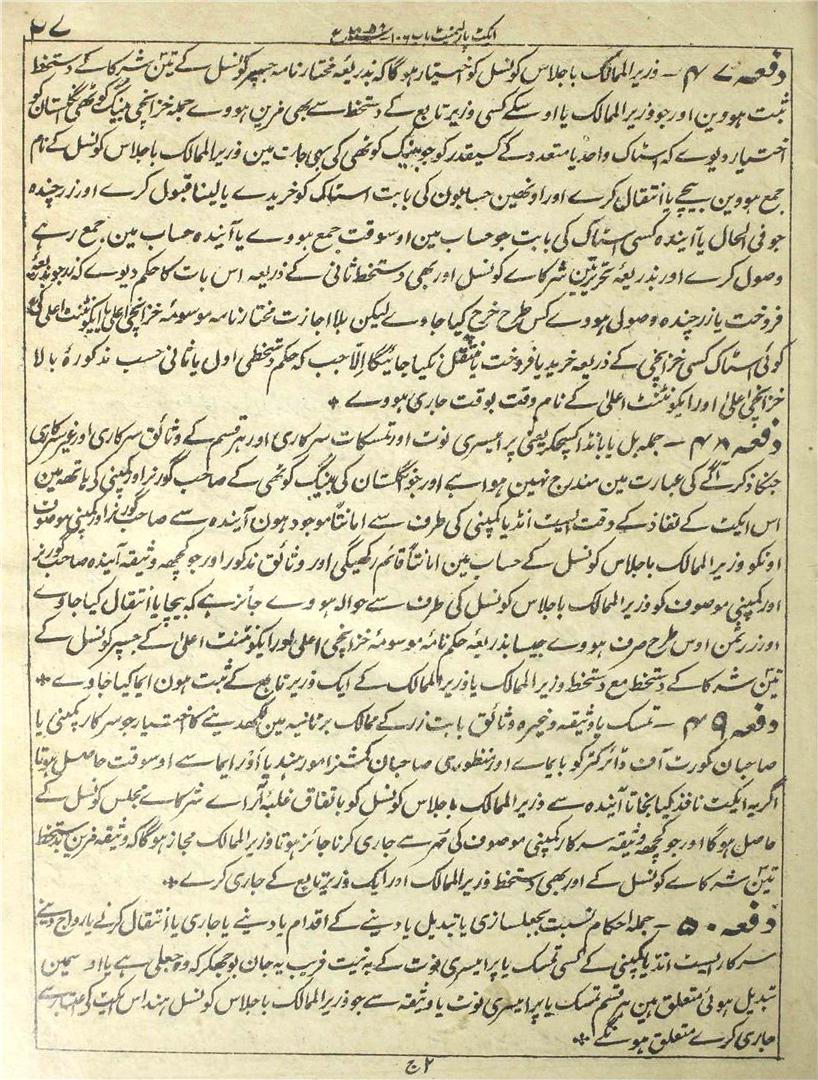 ایکٹ پارلیمنٹ باب ۱۰۶ ۲۷
دفعہ ۴۷ - وزیر الممالک باجلاس کونسل کو اختیار ہوگا کہ بذریعہ مختارنامہ جسپر کونسل کے تین شرکا کے دستخط
ثبت ہووین اور جو وزیر الممالک یا اوسکے کسی وزیر تابع کے دستخط سے بھی مزین ہووے جملہ خزانچی بینک کوٹھی انگلستان کو
اختیار دیوے کہ اسٹاک واحد یا متعدد کے کسیقدر کو جو بینک کوٹھی کی بہی جات مین وزیر الممالک باجلاس کونسل کے نام
جمع ہووین بیچے یا انتقال کرے اور اونھین حسابون کی بابت اسٹاک کو خریدے یا لینا قبول کرے اور زر چندہ
جو فی الحال یا آیندہ کسی سٹاک کی بابت جو حساب مین اوسوقت جمع ہووے یا آیندہ حساب مین جمع رہے
وصول کرے اور بذریعہ تحریر تین شرکاے کونسل اور بھی دستخط ثانی کے ذریعہ اس بات کا حکم دیوے کہ زر جو بذریعہ
فروخت یا زر چندہ وصولی ہووے کس طرح خرچ کیا جاوے لیکن بلا اجازت مختارنامہ موسومہ خزانچی اعلیٰ یا ایکونٹنٹ اعلیٰ کی
کوئی اسٹاک کسی خزانچی کے ذریعہ خرید یا فروخت یا منتقل نکیا جائیگا اِلّا جب کہ حکم دستخطی اول یا ثانی حسب مذکورۂ بالا
خزانچی اعلیٰ اور ایکونٹنٹ اعلیٰ کے نام وقت بوقت جاری ہووے *
دفعہ ۴۸ - جملہ بل یا بانڈ اکسچیکر یعنی پرامیسری نوٹ اور تمسکات سرکاری اور ہر قسم کے وثائق سرکاری اور غیر سرکاری
جنکا ذکر آگے کی عبارت مین مندرج نہین ہوا ہے اور جو انگلستان کی بینک کوٹھی کے صاحب گورنر اور کمپنی کی ہاتھہ مین
اس ایکٹ کے نفاذ کے وقت ایسٹ انڈیا کمپنی کی طرف سے امانتاً موجود ہون آیندہ سے صاحب گورنر اور کمپنی موصوف
اونکو وزیر الممالک باجلاس کونسل کے حساب مین امانتاً قائم رکھیگی اور وثائق مذکور اور جو کچھہ وثیقہ آیندہ صاحب گورنر
اور کمپنی موصوف کو وزیر الممالک باجلاس کونسل کی طرف سے حوالہ ہووے جائز ہے کہ بیچا یا انتقال کیا جاوے
اور زر ثمن اوس طرح صرف ہووے جیسا بذریعہ حکمنامہ موسومہ خزانچی اعلیٰ اور ایکونٹنٹ اعلیٰ کے جسپر کونسل کے
تین شرکا کے دستخط مع دستخط وزیر الممالک یا وزیر الممالک کے ایک وزیر تابع کے ثبت ہون ایما کیا جاوے *
دفعہ ۴۹ - تمسک یا وثیقہ وغیرہ وثائق بابت زر کے ممالک برتانیہ مین لکھدینے کا اختیار جو سرکار کمپنی یا
صاحبان کورٹ آف ڈائرکٹر کو بایماے اور منظوری صاحبان کمشنر امور ہند یا اَور ایما سے اوسوقت حاصل ہوتا
اگر یہ ایکٹ نافذ نکیا جاتا آیندہ سے وزیر الممالک باجلاس کونسل کو باتفاق غلبۂ آراے شرکاے مجلس کونسل کے
حاصل ہوگا اور جو کچھہ وثیقہ سرکار کمپنی موصوف کی مہر سے جاری کرنا جائز ہوتا وزیر الممالک مجاز ہوگا کہ وثیقہ مزین بدستخط
تین شرکاے کونسل کے اور بھی دستخط وزیر الممالک اور ایک وزیر تابع کے جاری کرے *
دفعہ ۵۰ - جملہ احکام نسبت جعلسازی یا تبدیل یا دینے کے اقدام یا دینے یا جاری یا انتقال کرنے یا رواج دینے
سرکار ایسٹ انڈیا کمپنی کے کسی تمسک یا پرامیسری نوٹ کے بہ نیت فریب یہ جان بوجھکر کہ وہ جعلی ہے یا اوسمین
تبدیل ہوئی متعلق ہین ہر قسم تمسک یا پرامیسری نوٹ یا وثیقہ سے جو وزیر الممالک باجلاس کونسل ہند اس ایکٹ کی اعتبار سے
جاری کرے متعلق ہونگے *
۲ ج